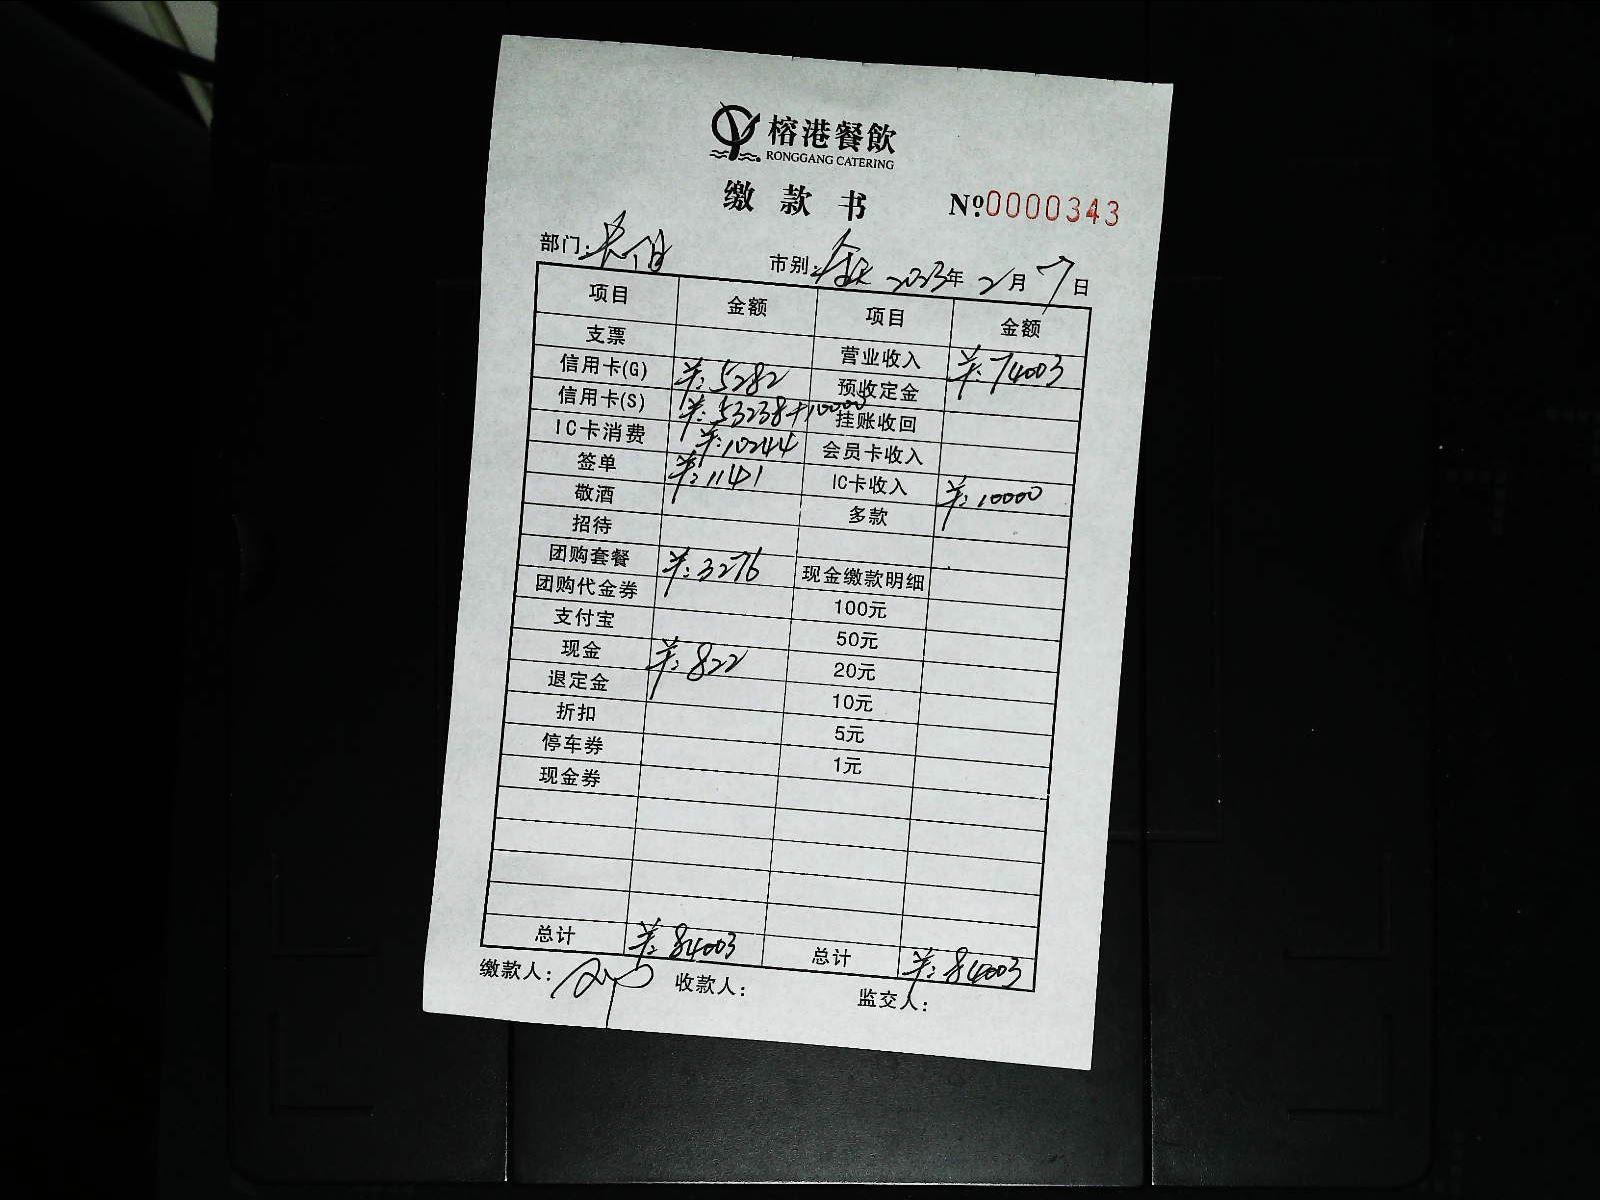 榕港餐飲
RONGGANG CATERING
缴款书 №0000343
部门: 市别: 全天 2023年2月7日
项目 金额 项目 金额
支票 营业收入 ¥:74003
信用卡(G) ¥:5282 预收定金
信用卡(S) ¥:53238+10000 挂账收回
IC卡消费 ¥:10244 会员卡收入
签单 ¥:1141 IC卡收入 ¥:10000
敬酒 多款
招待
团购套餐 ¥:3276 现金缴款明细
团购代金券 100元
支付宝 50元
现金 ¥:822 20元
退定金 10元
折扣 5元
停车券 1元
现金券
总计 ¥:84003 总计 ¥:84003
缴款人: 收款人: 监交人: